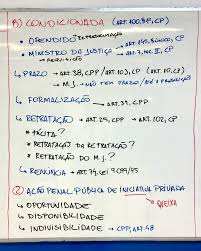 B) CONDICIONADA (ART. 100, §1º, CP)
• OFENDIDO REPRESENTAÇÃO
• MINISTRO DA JUSTIÇA → ART. 145, § ÚNICO, CP
REQUISIÇÃO → ART. 7, § 3, B, CP
↳ PRAZO → ART. 38, CPP / ART. 103, CP
↳ M.J. → NÃO TEM PRAZO
↳ FORMALIZAÇÃO
↳ ART. 39, CPP
↳ RETRATAÇÃO → ART. 25, CPP → ART. 102, CP
* TÁCITA?
* RETRATAÇÃO DA RETRATAÇÃO?
* RETRATAÇÃO DO M.J.?
↳ RENÚNCIA → ART. 74, LEI 9.099/95
② AÇÃO PENAL PÚBLICA DE INICIATIVA PRIVADA
QUEIXA
↳ OPORTUNIDADE
↳ DISPONIBILIDADE
↳ INDIVISIBILIDADE → CPP, ART. 48